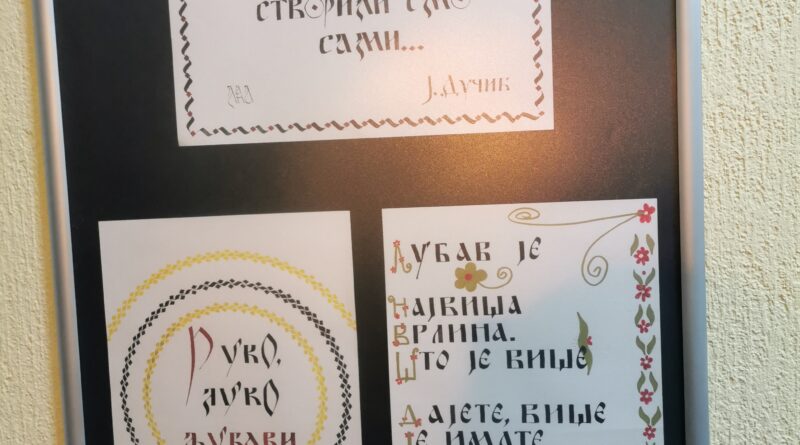 створили смо
сами...
Ј. Дучић
Руко,
муко
љубави
Љубав је
највиша
врлина.
Што је више
дајете, више
је имате